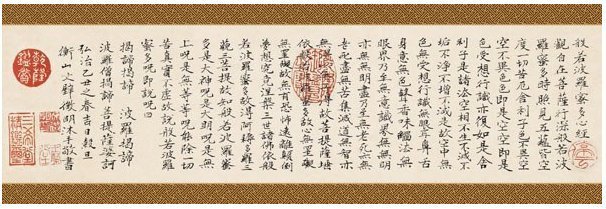 般若波羅蜜多心經
觀自在菩薩行深般若波
羅蜜多時照見五蘊皆空
度一切苦厄舍利子色不異空
空不異色色即是空空即是
色受想行識亦復如是舍
利子是諸法空相不生不滅不
垢不淨不增不減是故空中無
色無受想行識無眼耳鼻舌
身意無色聲香味觸法無
眼界乃至無意識界無無明
亦無無明盡乃至無老死亦無
老死盡無苦集滅道無智亦
無得以無所得故菩提薩埵
依般若波羅蜜多故心無罣礙
無罣礙故無有恐怖遠離顛倒
夢想究竟涅槃三世諸佛依般
若波羅蜜多故得阿耨多羅三
藐三菩提故知般若波羅蜜
多是大神呪是大明呪是無
上呪是無等等呪能除一切
苦真實不虛故說般若波羅
蜜多呪即說呪曰
揭諦揭諦 波羅揭諦
波羅僧揭諦 菩提薩婆訶
弘治乙丑之春吉日
衡山文璧徵明沐手敬書
乾隆鑑賞